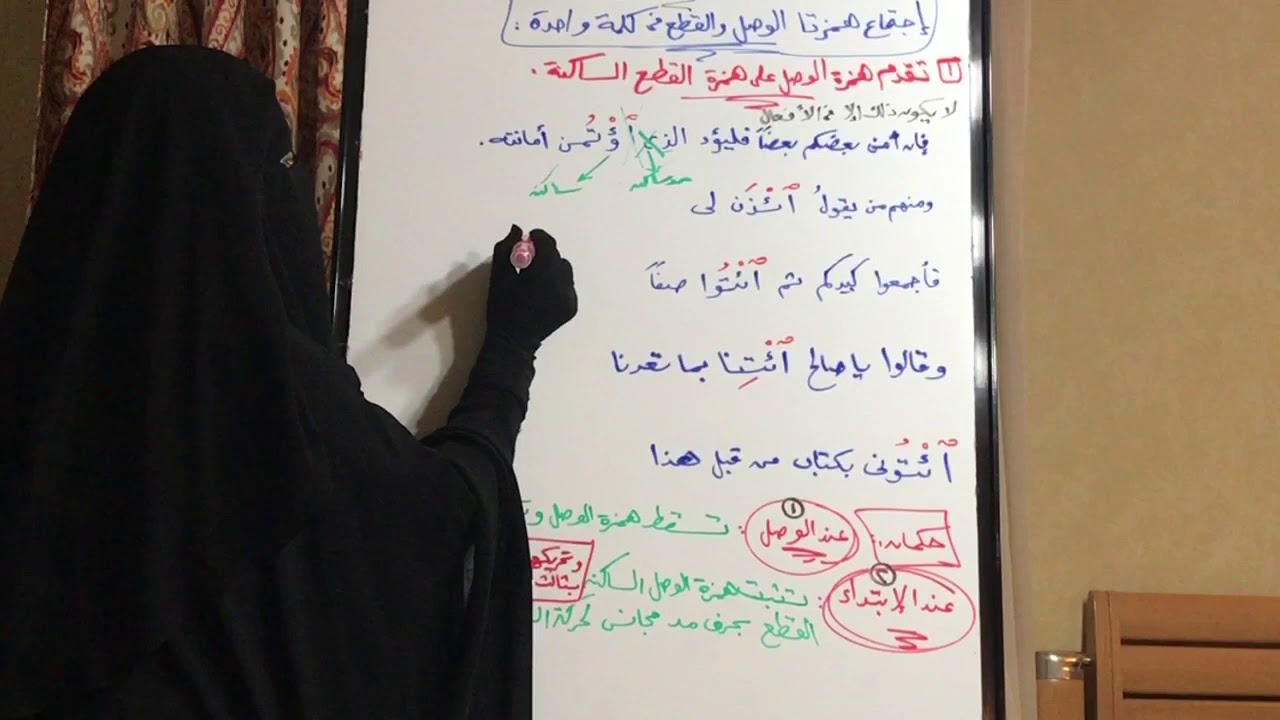 إجتماع همزتا الوصل والقطع في كلمة واحدة :
١ تقدم همزة الوصل على همزة القطع الساكنة .
لا يكون ذلك إلا في الأفعال
فإن أمن بعضكم بعضًا فليؤد الذي ٱؤْتُمن أمانته .
ساكنة
ومنهم من يقولُ ٱئْذَن لى
فأجمعوا كيدكم ثم ٱئْتُوا صفًا
وقالوا يا صالح ٱئْتِنا بما تعدنا
ٱئْتُونى بكتاب من قبل هذا
حكمان : ١ عند الوصل : تسقط همزة الوصل
وتحريكها بثالث
٢ عند الإبتداء : تثبت همزة الوصل الساكنة
القطع بحرف مد مجانس لحركة